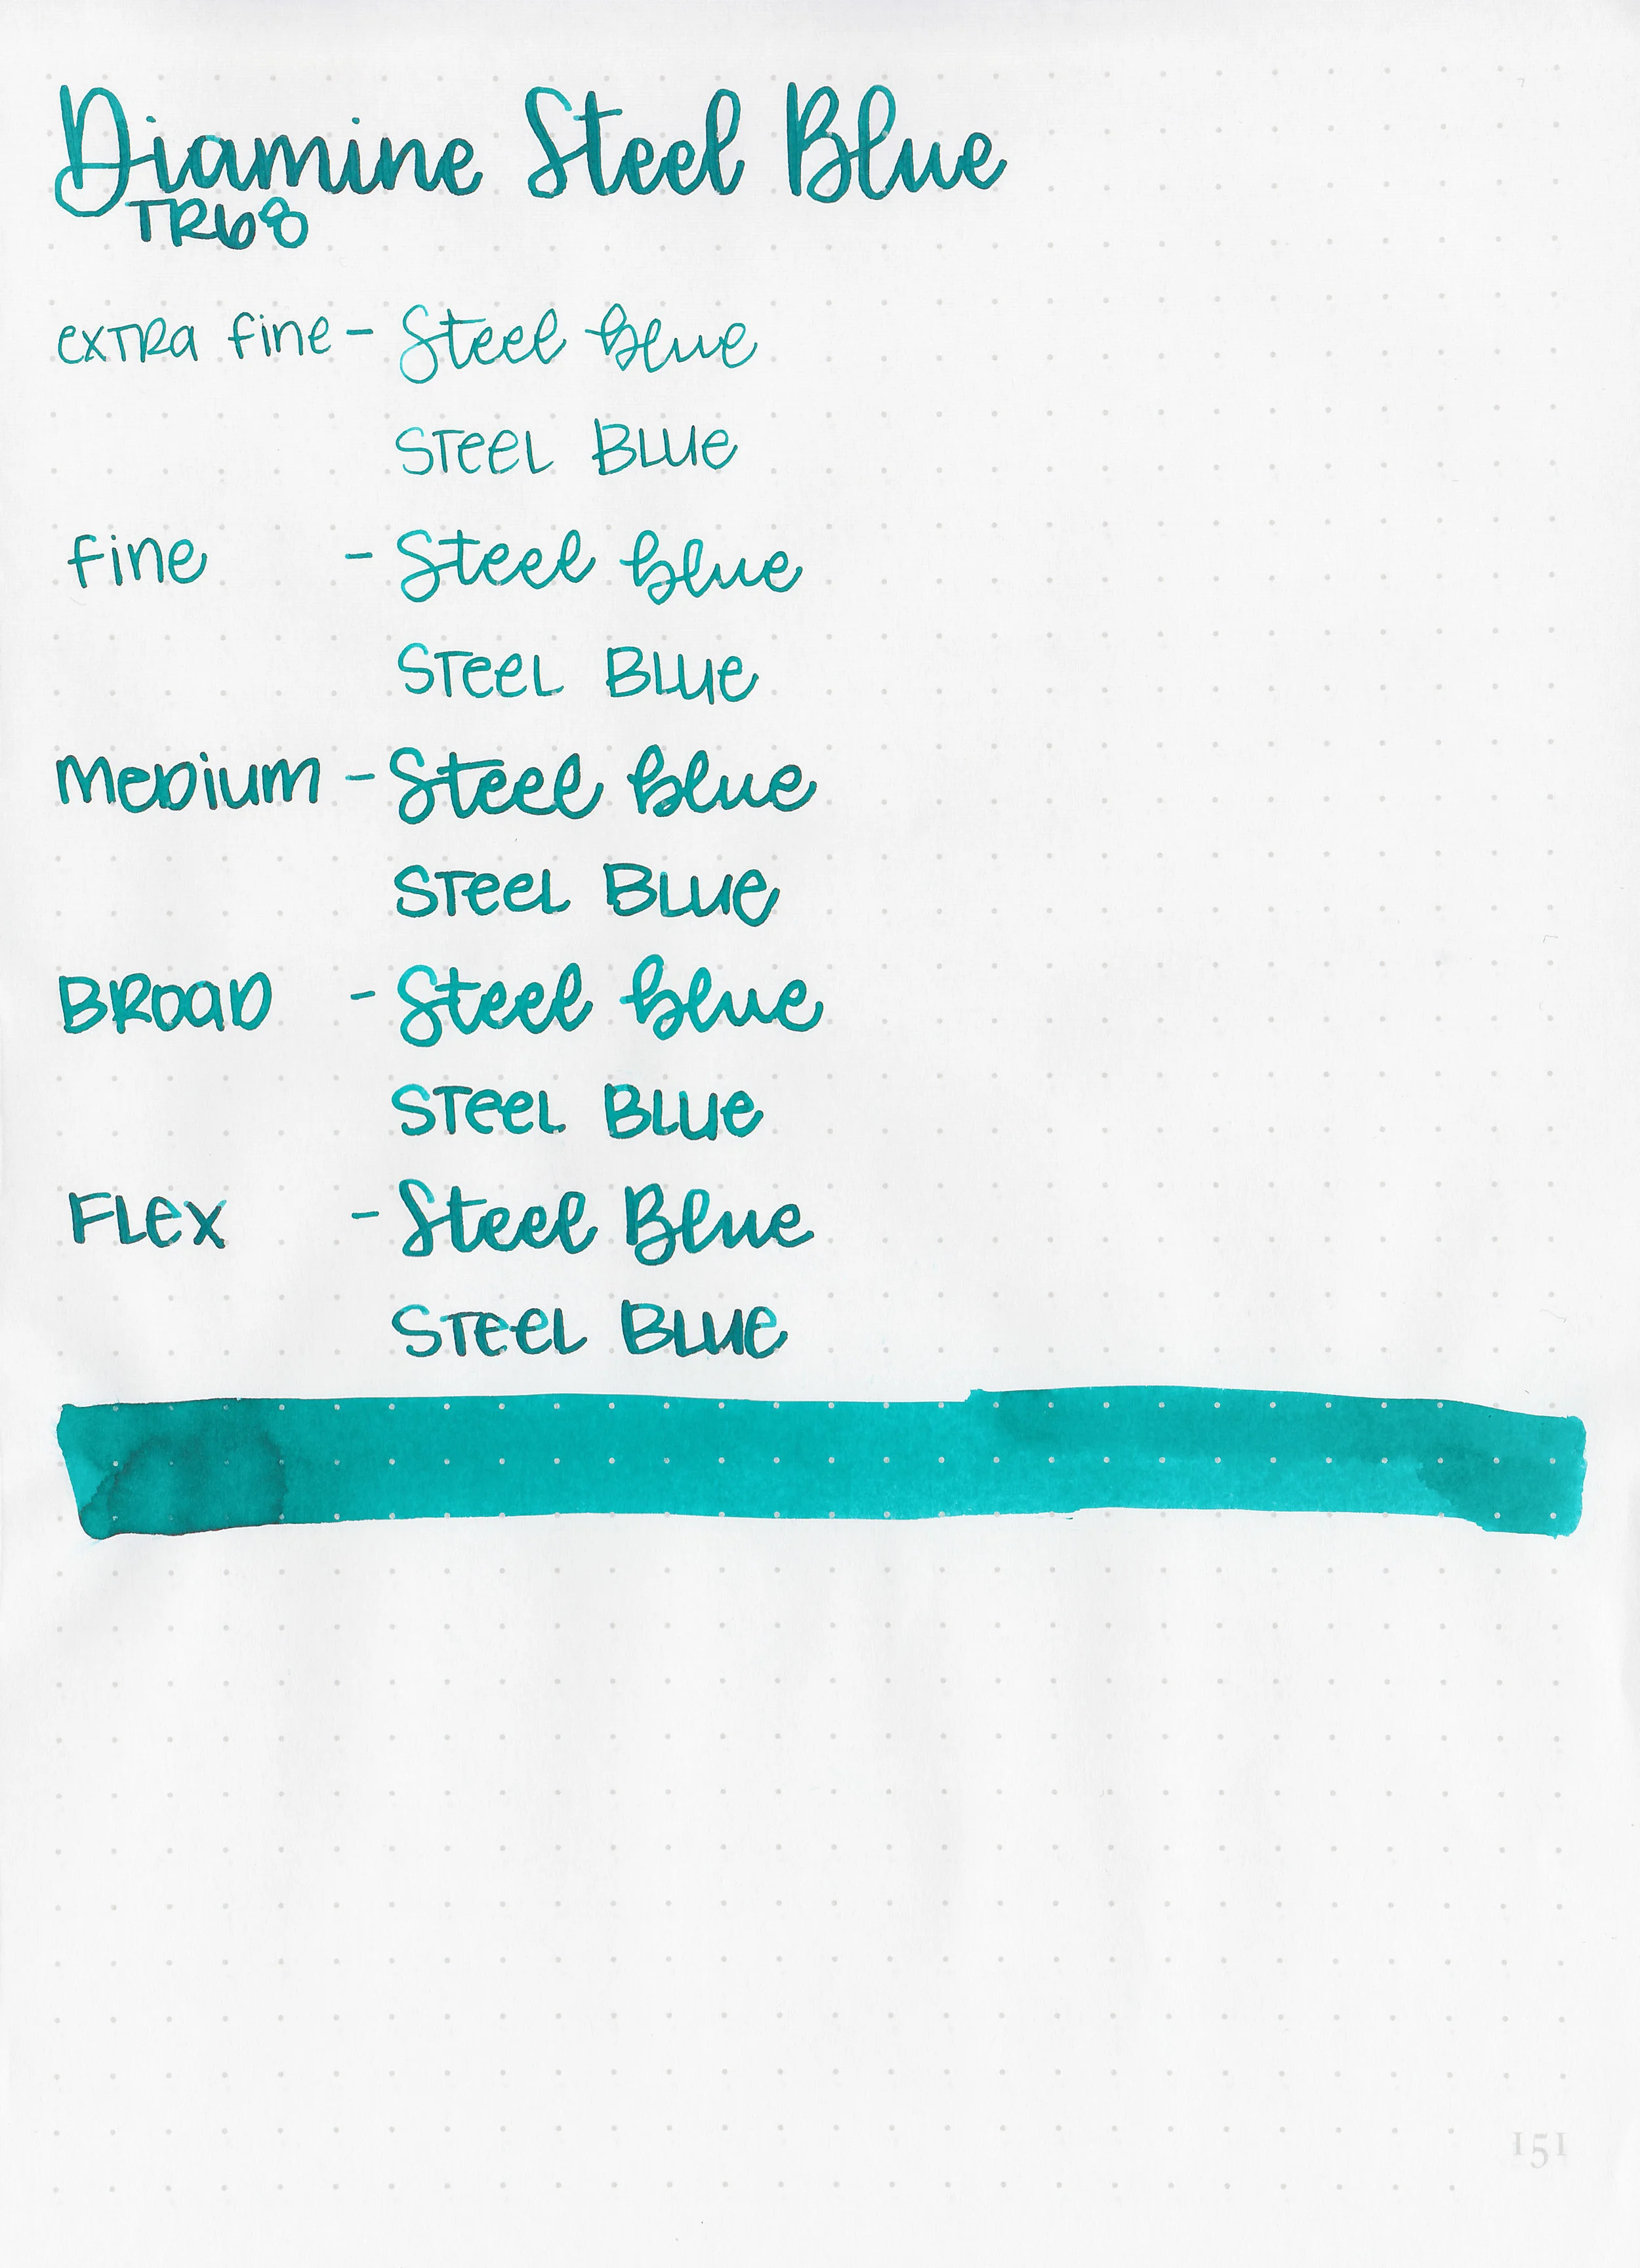 Diamine Steel Blue
TR68
extra fine - Steel blue
STeeL BLUe
fine - Steel blue
STeeL BLUe
MeDium - Steel blue
STeeL BLUe
BROAD - Steel blue
STeeL BLUe
FLex - Steel Blue
STeeL BLUe
151